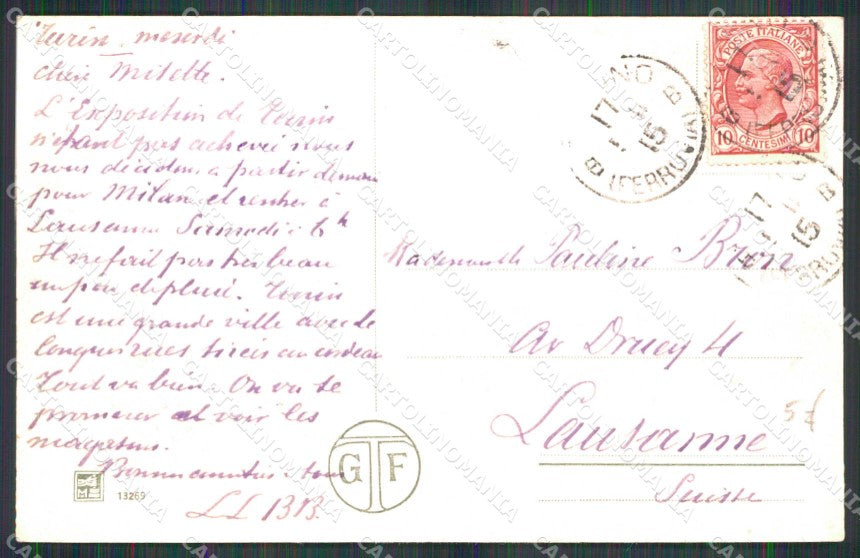 Turin mercredi
chère Milette.
L'Exposition de Turin
n'étant pas achevée nous
nous décidons a partir demain
pour Milan et rentrer à
Lausanne Samedi à 6h
Il ne fait pas très beau
un peu de pluie. Turin
est une grande ville avec de
longues rues tirées au cordeau
Tout va bien. On va se
promener et voir les
magasins.
13269
GTF
POSTE ITALIANE
10 CENTESIMI 10
(FERROVIA)
17
15
B
Mademoiselle Pauline Bron
Av Druey 4
Lausanne
Suisse
5f
CARTOLINOMANIA